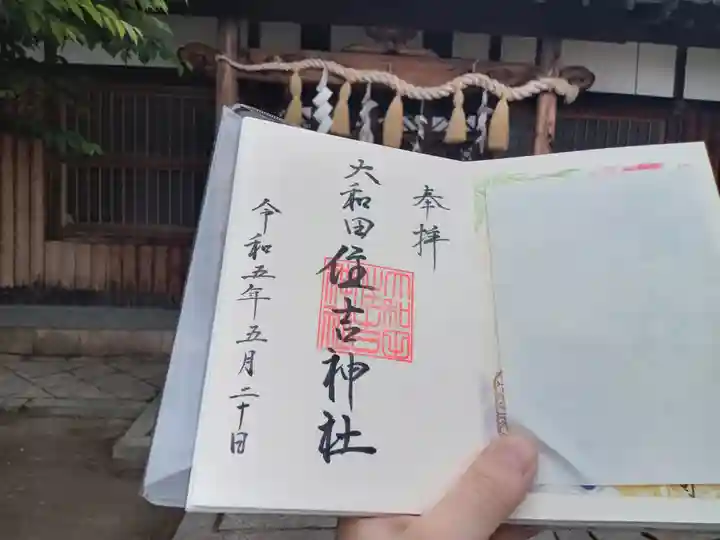 奉拝
大和田住吉神社
令和五年五月二十日